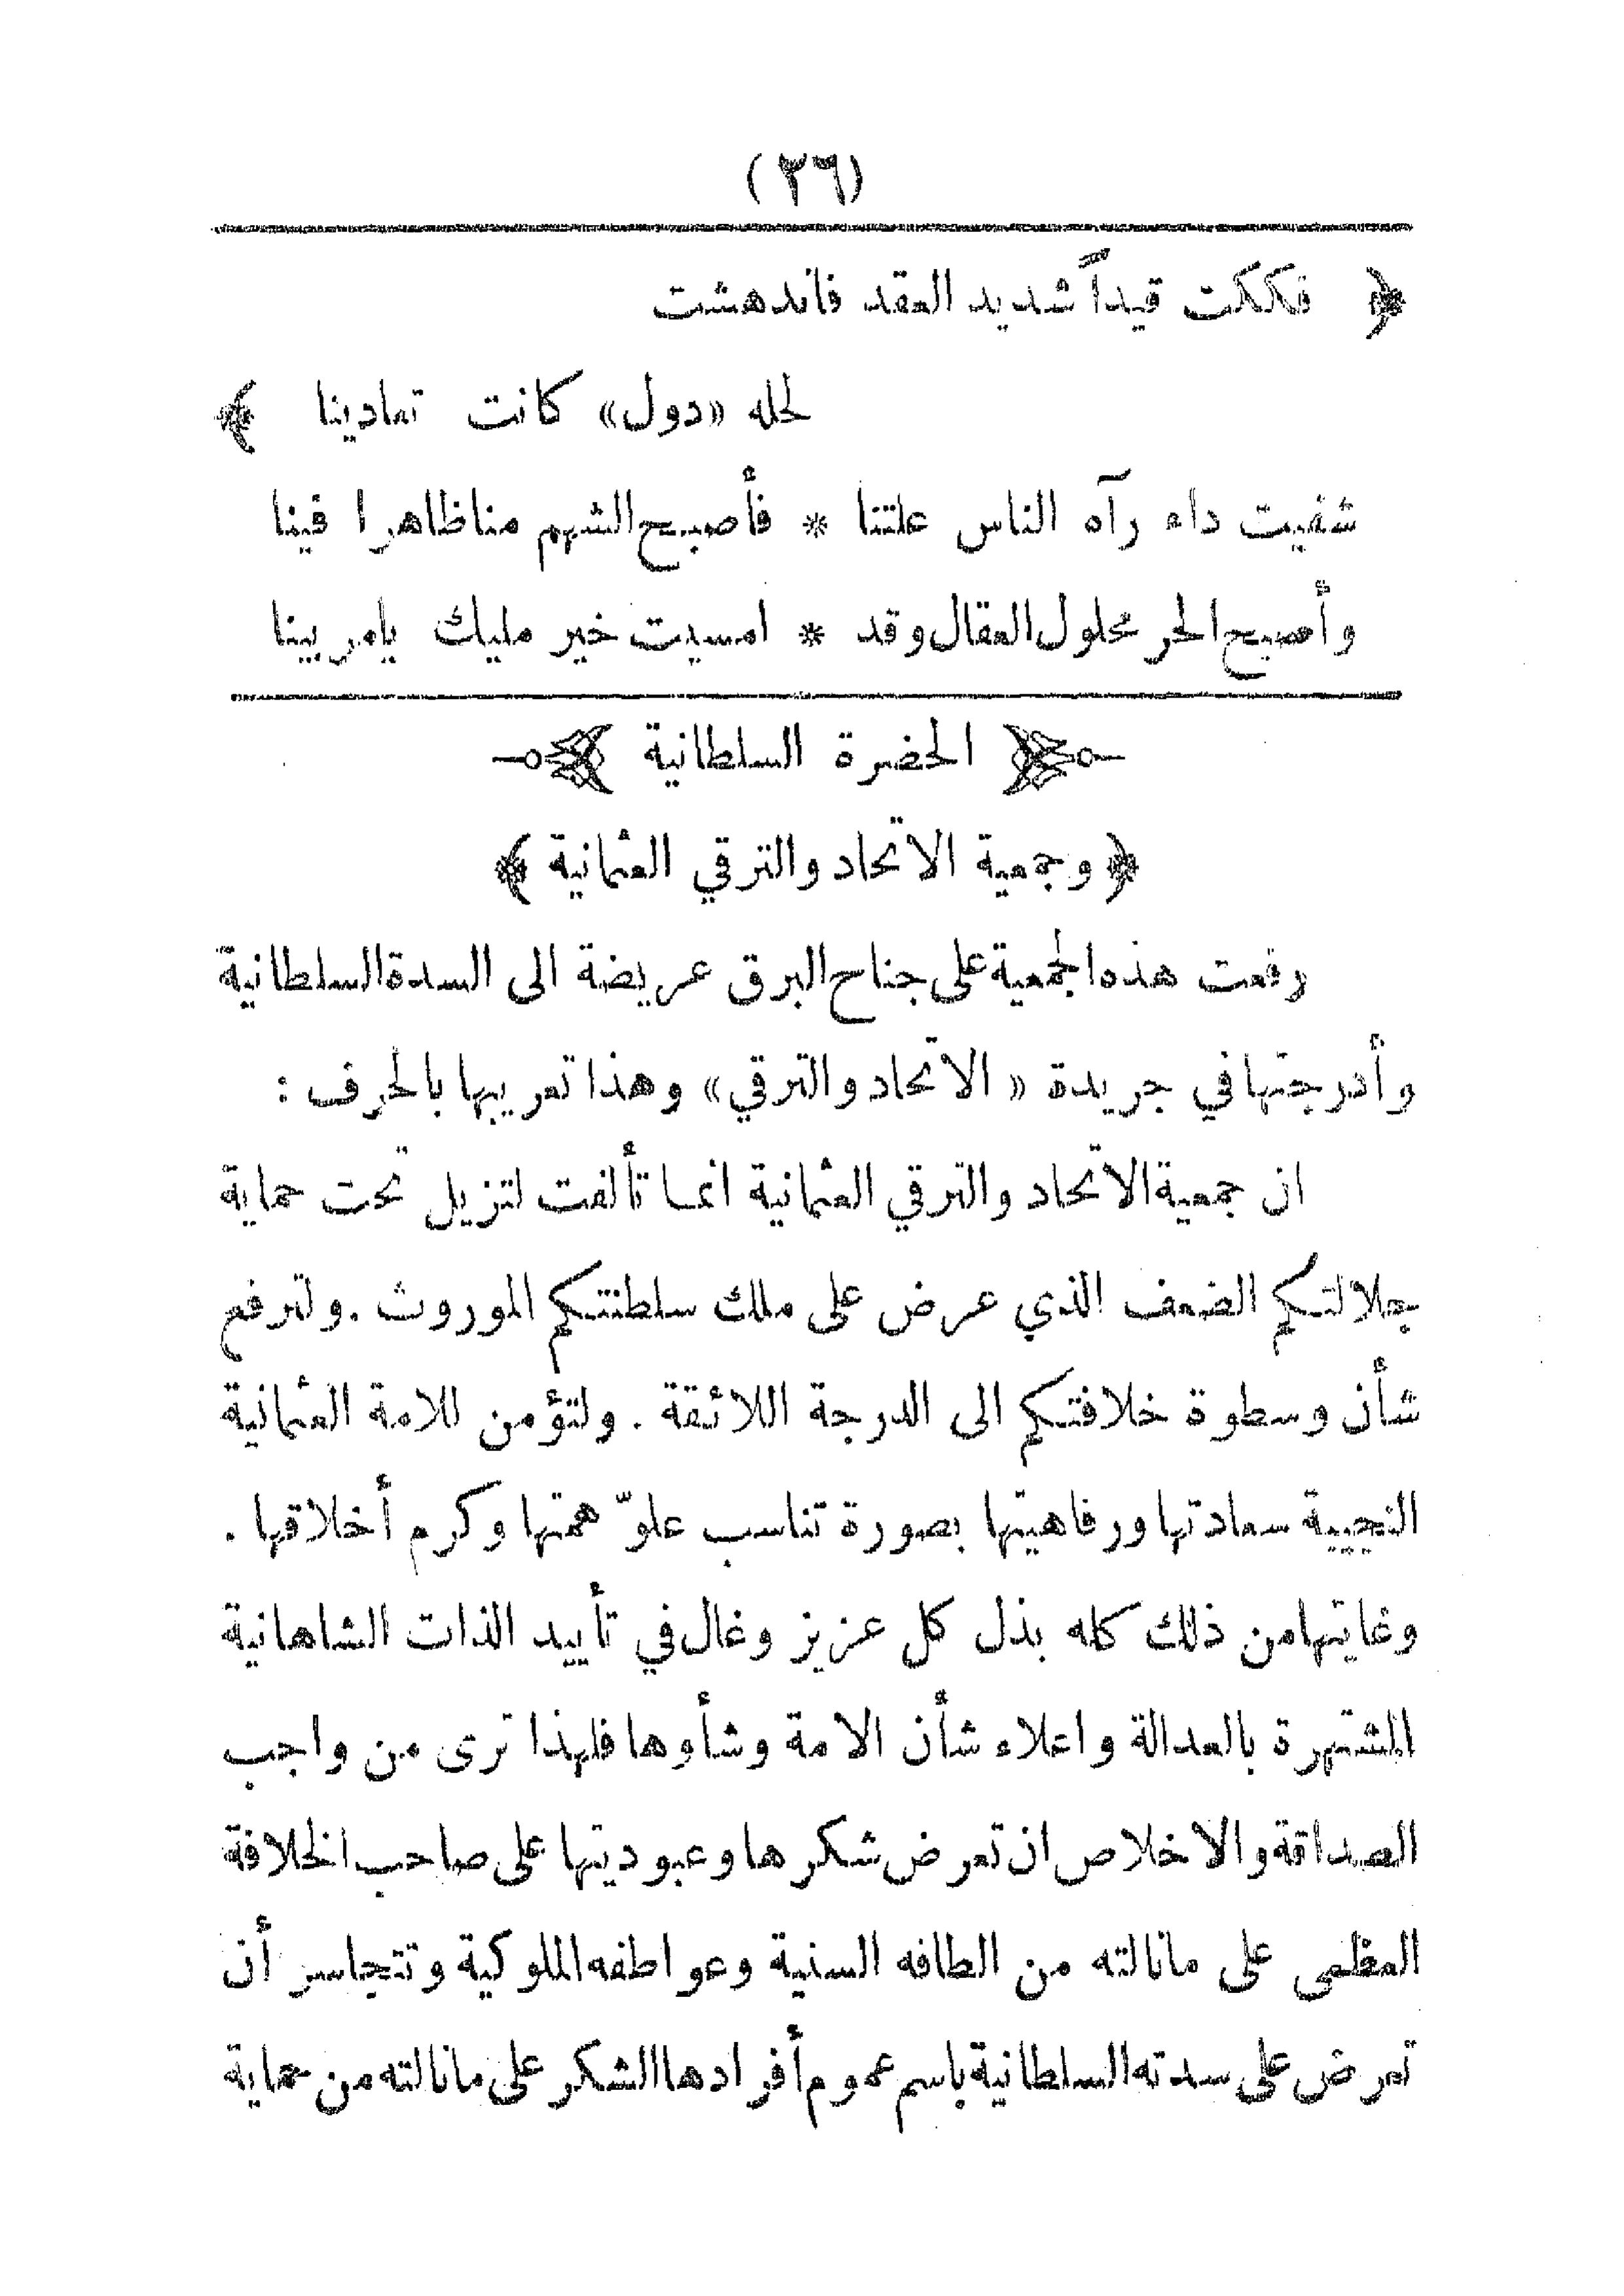 (٣٦)
﴿ فككت قيداً شديد العقد فاندهشت
لحله «دول» كانت تعادينا ﴾
شفيت داء رآه الناس علتنا * فأصبح الشهم منا ظاهرا فينا
وأصبح الحر محلول العقال وقد * امسيت خير مليك يامربينا
﴿ الحضرة السلطانية ﴾
﴿ وجمعية الاتحاد والترقي العثمانية ﴾
رفعت هذه الجمعية على جناح البرق عريضة الى السدة السلطانية
وأدرجتها في جريدة « الاتحاد والترقي» وهذا تعريبها بالحرف :
ان جمعية الاتحاد والترقي العثمانية انما تألفت لتزيل تحت حماية
جلالتكم الضعف الذي عرض على ملك سلطنتكم الموروث . ولترفع
شأن وسطوة خلافتكم الى الدرجة اللائقة . ولتؤمن للامة العثمانية
النجيبة سعادتها ورفاهيتها بصورة تناسب علوّ همتها وكرم أخلاقها .
وغايتها من ذلك كله بذل كل عزيز وغال في تأييد الذات الشاهانية
المشتهرة بالعدالة واعلاء شأن الامة وشأوها فلهذا ترى من واجب
الصداقة والاخلاص ان تعرض شكرها وعبوديتها على صاحب الخلافة
العظمى على مانالته من الطافه السنية وعواطفه الملوكية وتتجاسر أن
تعرض على سدته السلطانية باسم عموم أفرادها الشكر على مانالته من حماية